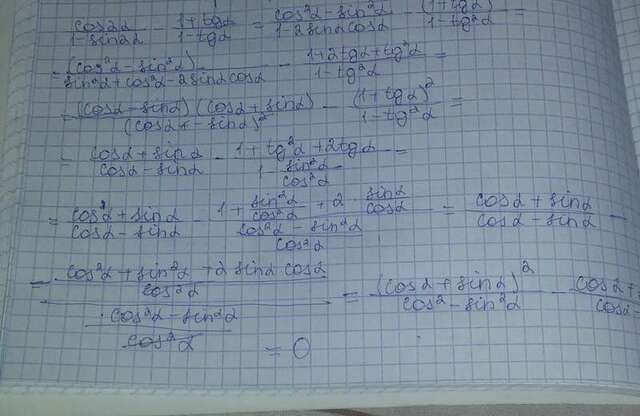 cos2α/(1-sin2α) - (1+tgα)/(1-tgα) = (cos²α-sin²α)/(1-2sinαcosα) - (1+tgα)/(1-tg²α) =
= (cos²α-sin²α)/(sin²α+cos²α-2sinαcosα) - (1+2tgα+tg²α)/(1-tg²α) =
= (cosα-sinα)(cosα+sinα)/(cosα-sinα)² - (1+tgα)²/(1-tg²α) =
- (cosα+sinα)/(cosα-sinα) - (1+tg²α+2tgα)/(1-sin²α/cos²α) =
= (cosα+sinα)/(cosα-sinα) - (1+sin²α/cos²α+2·sinα/cosα)/((cos²α-sin²α)/cos²α) = (cosα+sinα)/(cosα-sinα) -
- ((cos²α+sin²α+2sinα·cosα)/cos²α)/((cos²α-sin²α)/cos²α) = (cosα+sinα)²/(cos²-sin²α) - cosα+/cosα-
= 0